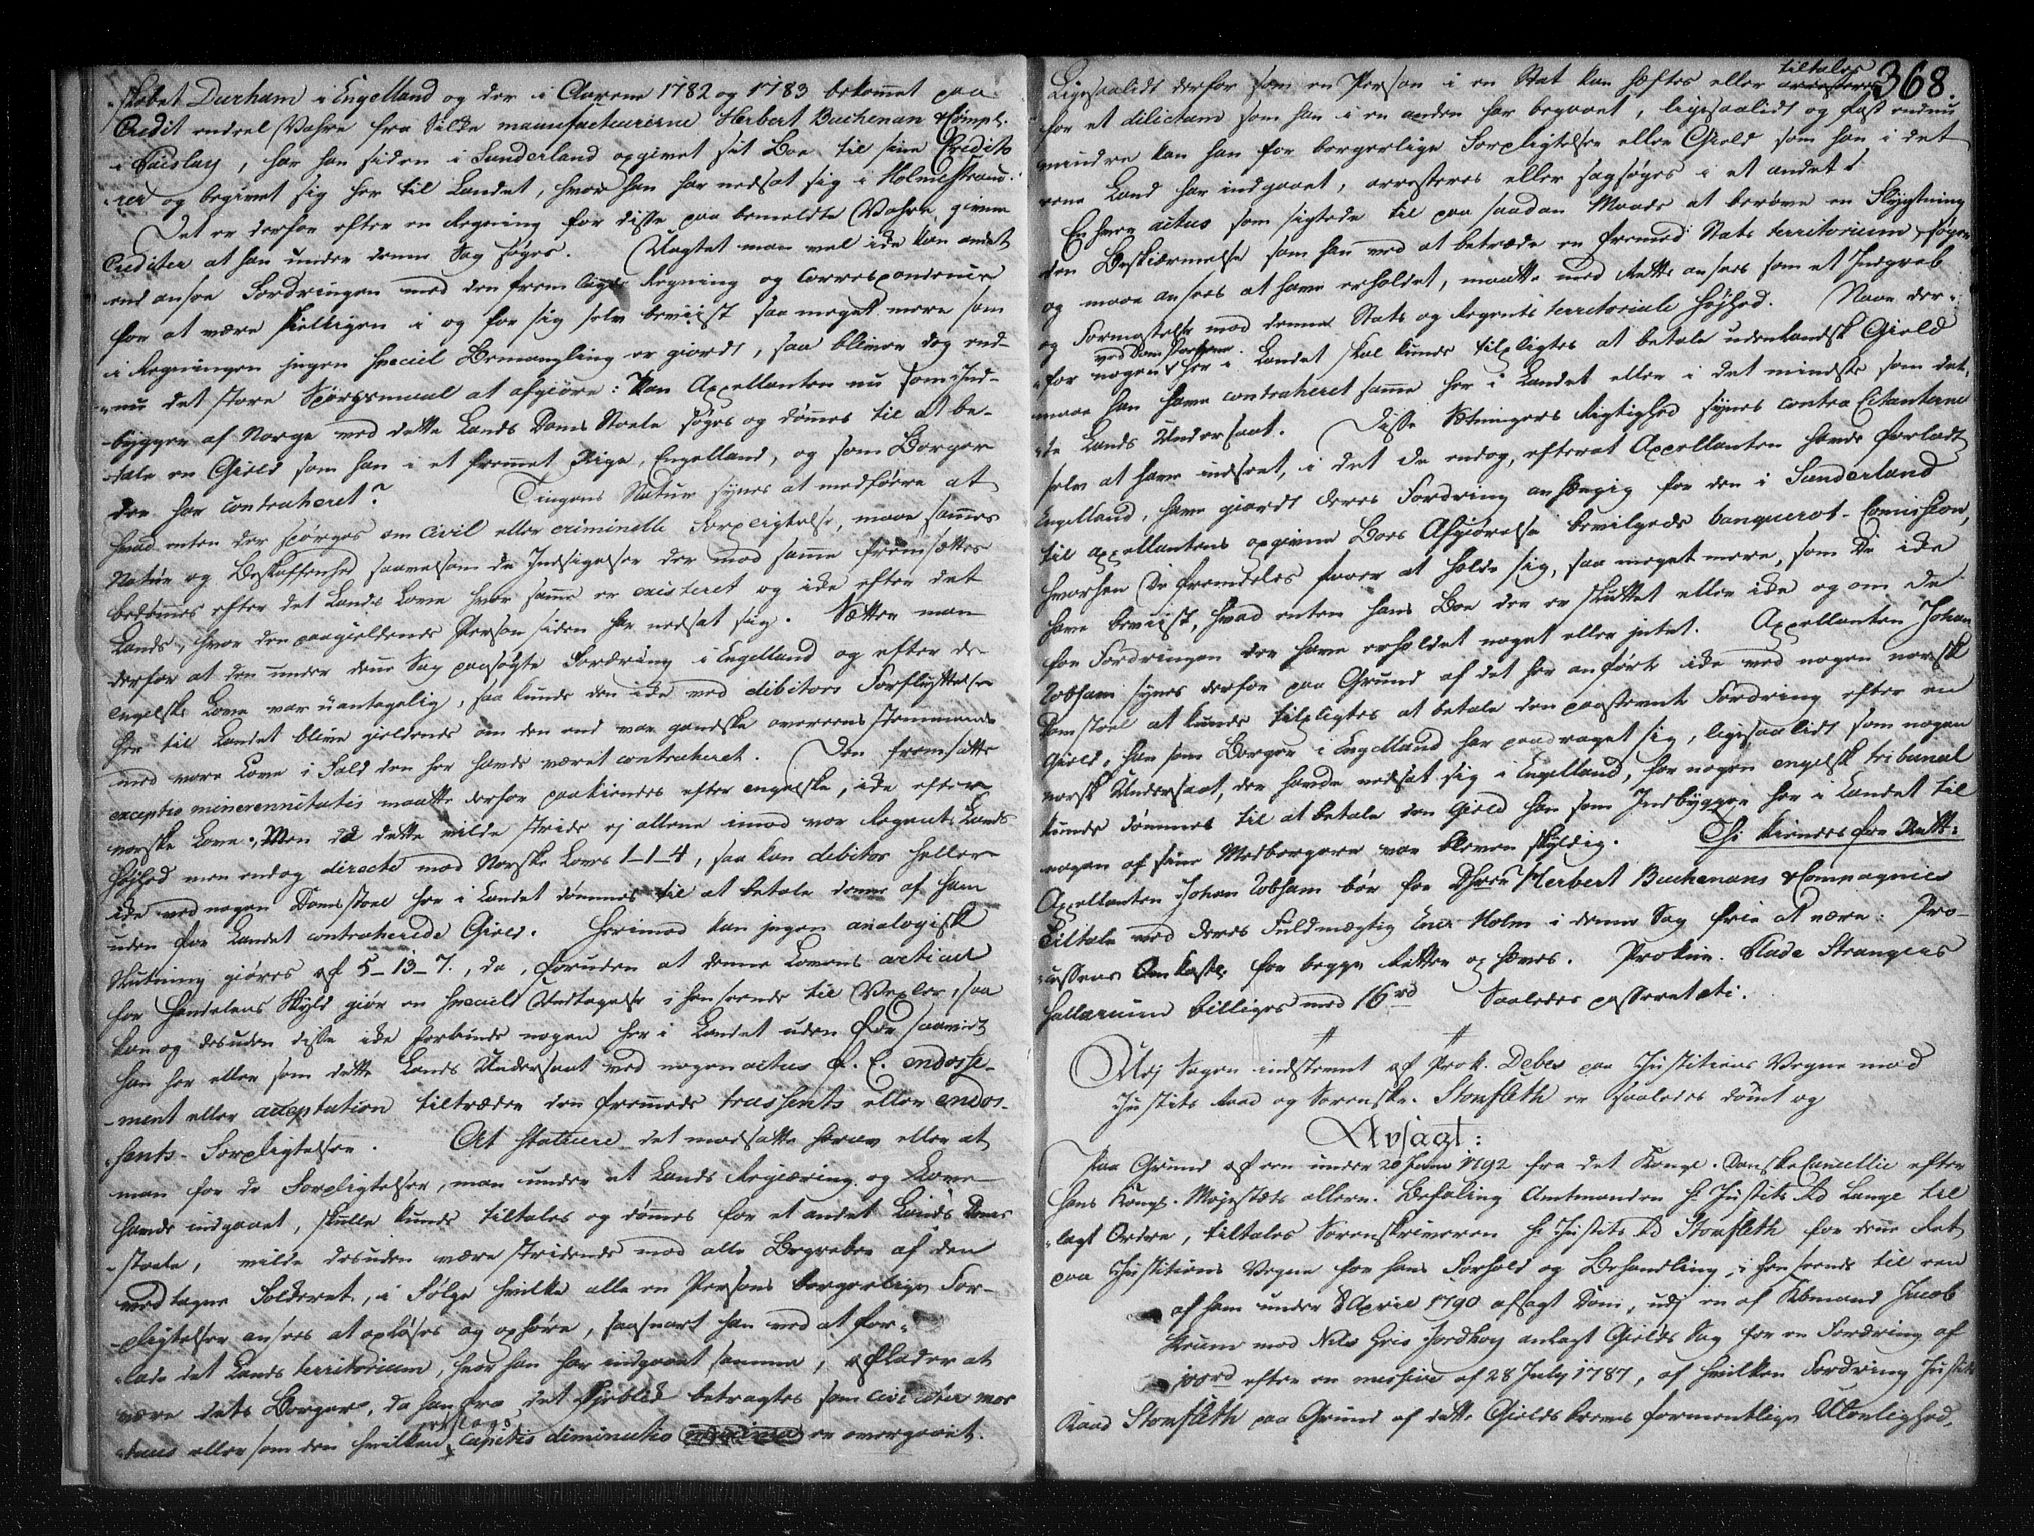 -skabet Durham i Engelland og der i Aarene 1782 og 1783 bekommet paa
Credit endeel Vahre fra Silke manufacteurerne Herbert Buchenan & Comp:
i Paislay, har han siden i Sunderland opgivet sit Boe til sine Credito-
-rer og begivet sig her til Landet, hvor han har nedsat sig i Holmestrand.
Det er derfor efter en Regning for disse paa bemeldte Vahre givne
Crediter at han under denne Sag søges. Uagtet man vel ikke kan andet
end ansee Fordringen med den fremlagde Regning og Correspondence
for at være tilligen i og for sig selv beviist saa meget mere som
i Regningen ingen speciel Bemangling er giordt, saa bliver dog end-
-nu det store Spørgsmaal at afgiøre: Kan Appellanten nu som Ind-
-bygger af Norge ved dette Lands Dom Stoele søges og dømmes til at be-
-tale en Gield som han i et fremmet Rige, Engelland, og som Borger
der har contraheret? Tingens Natur synes at medføre at
hvad enten der spørges om Civil eller criminelle Forpligtelse, maae sammes
Natur og Beskaffenhed saavelsom de Indsigelser der mod samme fremsættes
bedømmes efter det Lands Love hvor samme er existeret og ikke efter det
Lands, hvor den paagieldende Person siden har nedsat sig. Sætter man
derfor at den under denne Sag paasøgte Fordring i Engelland og efter de
engelske Love var uantagelig, saa kunde den ikke ved debitors Forflyttelse
her til Landet blive gieldende om den end var gandske overeensstemmende
med vore Love i Fald den her havde været contraheret. Den fremsatte
exceptio minorennitatis maatte derfor paakiendes efter engelske, ikke efter
norske Love. Men da dette vilde stride ej allene imod vor Regents Lands
Høihed men endog directe mod Norske Lovs 1-1-4, saa kan debitor heller
ikke ved nogen Domstoel her i Landet dømmes til at betale denne af ham
uden for Landet contraherede Gield. Herimod kan ingen analogisk
Slutning giøres af 5-13-7., da, foruden at denne Lovens articul
for Handelens Skyld giør en speciel Undtagelse i henseende til Vexler, saa
kan og desuden disse ikke forbinde nogen her i Landet uden for saavidt
han her eller som dette Lands Undersaat ved nogen actus f. E. endosse-
-ment eller acceptation tiltræder den fremmede trassents eller endos-
-sents Forpligtelser. At statuere det modsatte heraf eller at
man for de Forpligtelser, man under et Lands Regiering og Love
havde indgaaet, skulle kunde tiltales og dømmes for et andet Lands Dom-
-stoele, vilde desuden være stridende mod alle Begreber af den
vedtagne Folkeret, i Følge hvilke alle en Persons borgerlige For-
-pligtelser ansees at opløses og ophøre, saasnart han ved at for-
-lade det Lands territorium, hvor han har indgaaet samme, aflader at
være dets Borger, da han fra det Øjeblik betragtes som civiliter mor-
-tuus eller som den hvilken et slags capitis diminutio er overgaaet.
368.
Ligesaalidt derfor som en Person i en Stat kan hæftes eller tiltales
for et dilictum som han i en anden har begaaet, ligesaalidt og fast endnu
mindre kan han for borgerlige Forpligtelser eller Gield som han i det
eene Land har indgaaet, arresteres eller sagsøges i et andet.
Enhver actus som sigtede til paa saadan Maade at berøve en Flygtning
den Beskiermelse som han ved at betræde en fremmed Stats territorium søger
og maae ansees at have erholdet, maatte med Rette ansees som et Indgreb
og Formastelse mod denne Stats og Regents territoriale Høihed. Naar der-
-for nogen ved Dom her i Landet skal kunde tilpligtes at betale udenlandsk Gield
maae han have contraheret samme her i Landet eller i det mindste som det-
-te Lands Undersaat. Disse Sætningers Rigtighed synes contra Citanterne
selv at have indseet, i det de endog, efterat Appellanten havde forladt
Engelland, have giordt deres Fordring anhængig for den i Sunderland
til appellantens opgivne Boes Afgiørelse bevilgede banquerot-Commission,
hvorhen De fremdeles faaer at holde sig, saa meget mere, som De ikke
have beviist, hvad enten hans Boe der er sluttet eller ikke og om De
for Fordringen der have erholdet noget eller intet. Appellanten Johan
Cobham synes derfor paa Grund af det her anførte ikke ved nogen norsk
Domstoel at kunde tilpligtes at betale den paastevnte Fordring efter en
Gield, han som Borger i Engelland har paadraget sig, ligesaalidt som nogen
norsk Undersaat, der havde nedsat sig i Engelland, for nogen engelsk tribunal
kunde dømmes til at betale den Gield han som Indbygger her i Landet til
nogen af sine Medborgere var bleven skyldig. Thi kiendes for Rett:
Appellanten Johan Cobham bør for Dhrrr Herbert Buchenans & Compagnies
Tiltale ved deres Fuldmægtig Ener Holm i denne Sag frie at være. Pro-
-cessens Omkostn. for begge Retter ophæves. Prokur. Slade Strangers
sallarium billiges med 16 rd Saaledes passeret etc.
Udj Sagen indstevnt af Prok. Debes paa Justitiens Vegne mod
Justits Raad og Sorenskr. Stonfleth er saaledes dømt og
Avsagt:
Paa Grund af en under 20 Janu 1792 fra det Kongl. Danske Cancellie efter
Hans Kongl. Majestæts allern. Befaling Amtmanden Hr Justits Rd Lange til-
-lagt Ordre, tiltales Sorenskriveren Hr Justits Rd Stonfleth for denne Ret
paa Justitiens Vegne for hans Forhold og Behandling, i henseende til een
af ham under 8 Aprill 1790 afsagt Dom, udj en af Kiøbmand Jacob
Krum mod Niels Gris Jordhoy anlagt Gields Sag for en Fordring af
rd efter en missive af 28 July 1787, af hvilken Fordring Justits
Raad Stonfleth paa Grund af dette Gields brevs formentlige Ulovlighed,